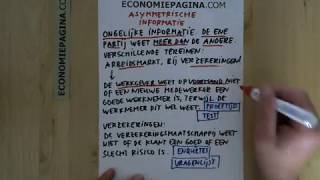 ECONOMIEPAGINA.COM
ASYMMETRISCHE
INFORMATIE
ONGELIJKE INFORMATIE. DE ENE
PARTIJ WEET MEER DAN DE ANDERE.
VERSCHILLENDE TERREINEN:
ARBEIDSMARKT, BIJ VERZEKERINGEN
DE WERKGEVER WEET OP VOORHAND NIET
OF EEN NIEUWE MEDEWERKER EEN
GOEDE WERKNEMER IS, TERWIJL DE
WERKNEMER DIT WEL WEET. PROEFTIJD
TEST
VERZEKERINGEN:
DE VERZEKERINGSMAATSCHAPPIJ WEET
NIET OF DE KLANT EEN GOED OF EEN
SLECHT RISICO IS. ENQUÊTES
VRAGENLIJST
ECONOMIEPAGINA.COM